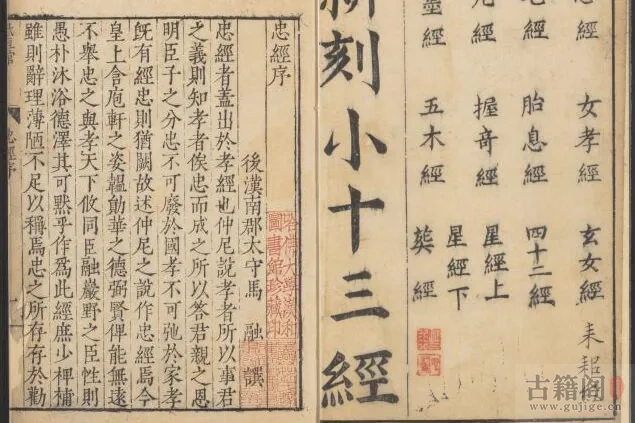 忠經序
後漢南郡太守馬 融 撰
忠經者蓋出於孝經也仲尼說孝者所以事君
之義則知孝者俟忠而成之所以答君親之恩
明臣子之分忠不可廢於國孝不可弛於家孝
既有經忠則猶闕故述仲尼之說作忠經焉今
皇上含庖軒之姿韞勛華之德弼賢俾能無遠
不舉忠之與孝天下攸同臣融巖野之臣性則
愚朴沐浴德澤其可默乎作爲此經庶少裨補
雖則辭理薄陋不足以稱焉忠之所存存於勸
忠經序
哈佛大學漢和
圖書館珍藏印
忠經 女孝經 玄女經
經 胎息經 四十二經
經 握奇經 星經上
星經下
墨經 五木經 葬經
新刻小十三經
古籍阁
www.gujige.cn